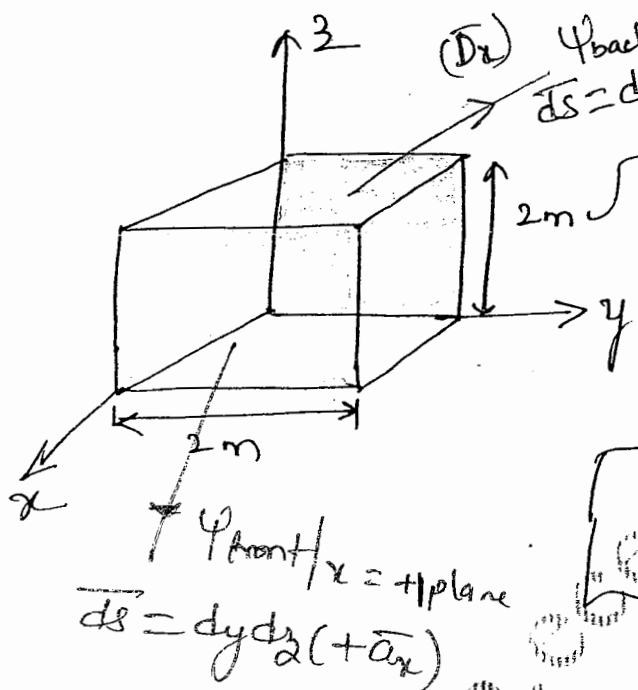 z
(D̄x) ψback
d̄s = d
2m
y
2m
x
ψfront/x = +1 plane
d̄s = dydz(+āx)